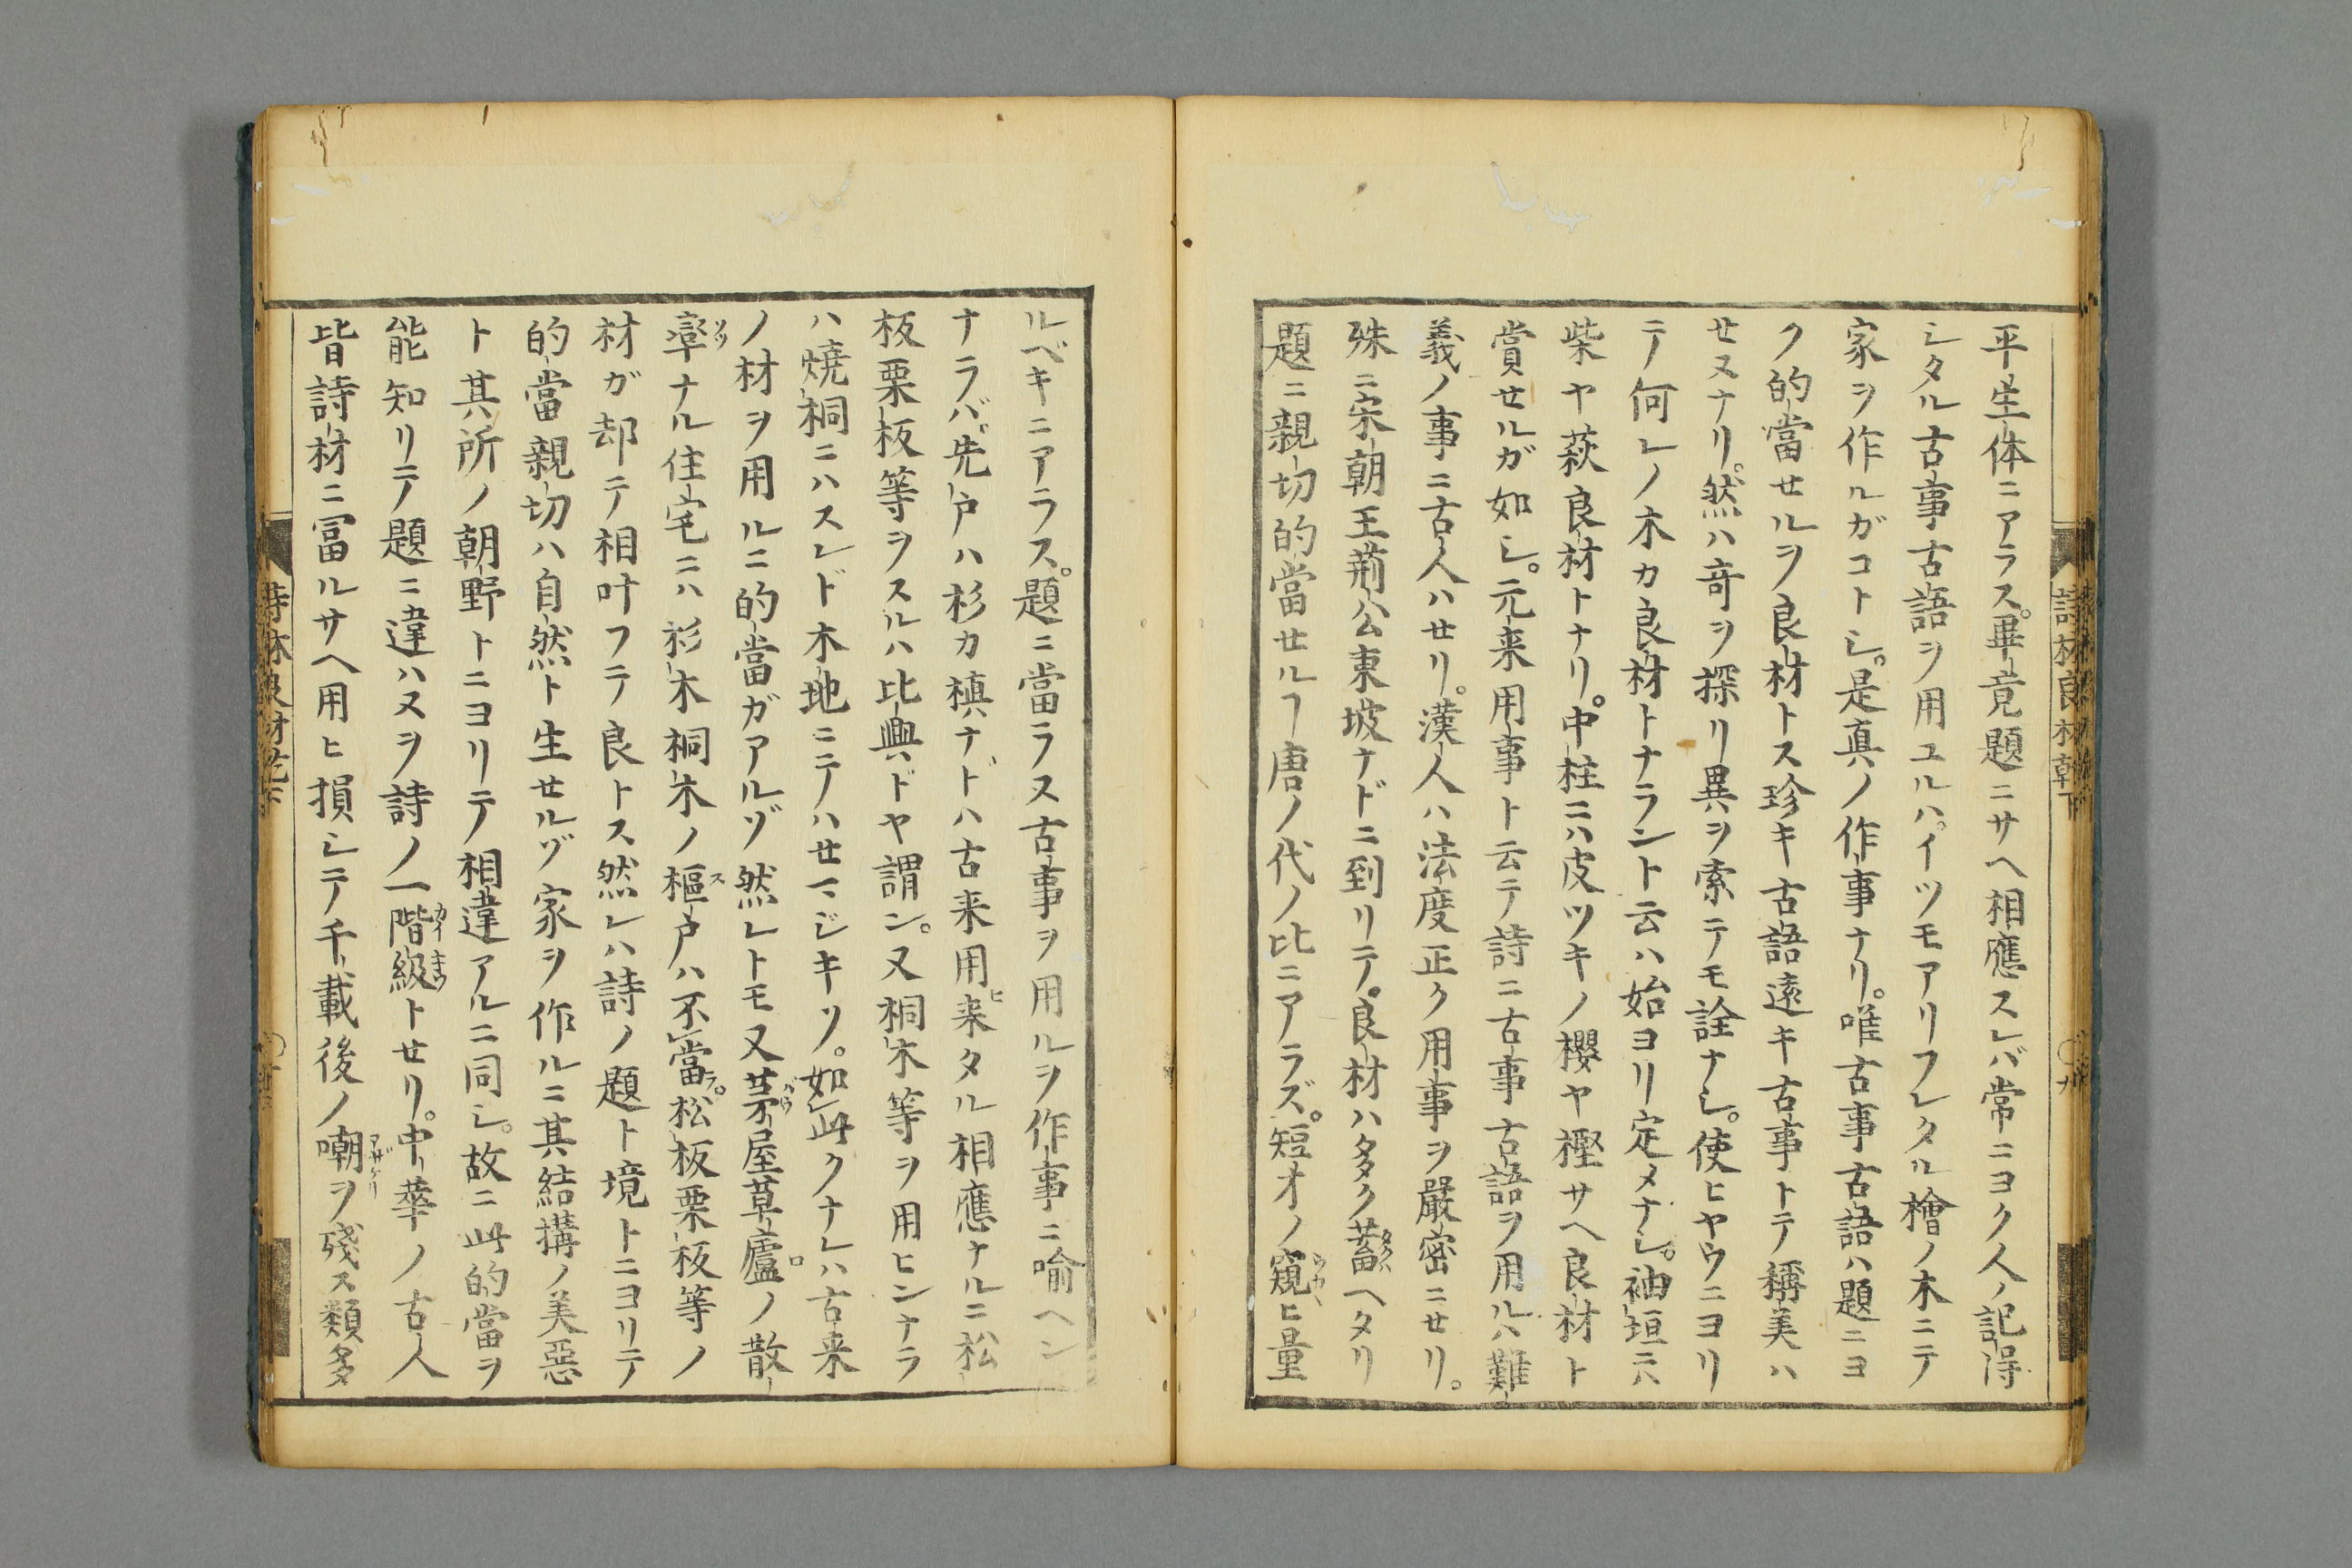 平生体ニアラス。畢竟題ニサヘ相應スレバ常ニヨク人ノ記得
シタル古事古語ヲ用ユルハイツモアリフレタル檜ノ木ニテ
家ヲ作ルガコトシ。是真ノ作事ナリ。唯古事古語ハ題ニヨ
ク的當セルヲ良材トス珍キ古語遠キ古事トテ稱美ハ
セヌナリ。然ハ奇ヲ探リ異ヲ索テモ詮ナシ。使ヒヤウニヨリ
テ何レノ木カ良材トナラント云ハ始ヨリ定メナシ。袖垣ニハ
柴ヤ萩良材トナリ。中柱ニハ皮ツキノ櫻ヤ樫サヘ良材ト
賞セルガ如シ。元来用事ト云テ詩ニ古事古語ヲ用ルハ難
義ノ事ニ古人ハセリ。漢人ハ法度正ク用事ヲ嚴密ニセリ。
殊ニ宋朝王荊公東坡ナドニ到リテ。良材ハ多ク蓄ヘタリ
題ニ親切的當セルヿ唐ノ代ノ比ニアラズ。短才ノ窺ヒ量
ルベキニアラス。題ニ當ラヌ古事ヲ用ルヲ作事ニ喻ヘン
ナラバ先戸ハ杉カ槙ナドハ古来用来タル相應ナルニ松
板栗板等ヲスルハ比興ドヤ謂ン。又桐木等ヲ用ヒンナラ
ハ燒桐ニハスレド木地ニテハセマジキソ。如此クナレハ古来
ノ材ヲ用ルニ的當ガアルゾ然レトモ又茅屋草廬ノ散
ナル住宅ニハ衫木桐木ノ樞戸ハ不當ラ。松板栗板等ノ
材ガ却テ相叶フテ良トス然レハ詩ノ題ト境トニヨリテ
的當親切ハ自然ト生セルゾ家ヲ作ルニ其結搆ノ美惡
ト其所ノ朝野トニヨリテ相違アルニ同シ。故ニ此的當ヲ
能知リテ題ニ違ハヌヲ詩ノ一階級トセリ。中華ノ古人
皆詩材ニ冨ルサヘ用ヒ損シテ千載後ノ嘲ヲ殘ス類多